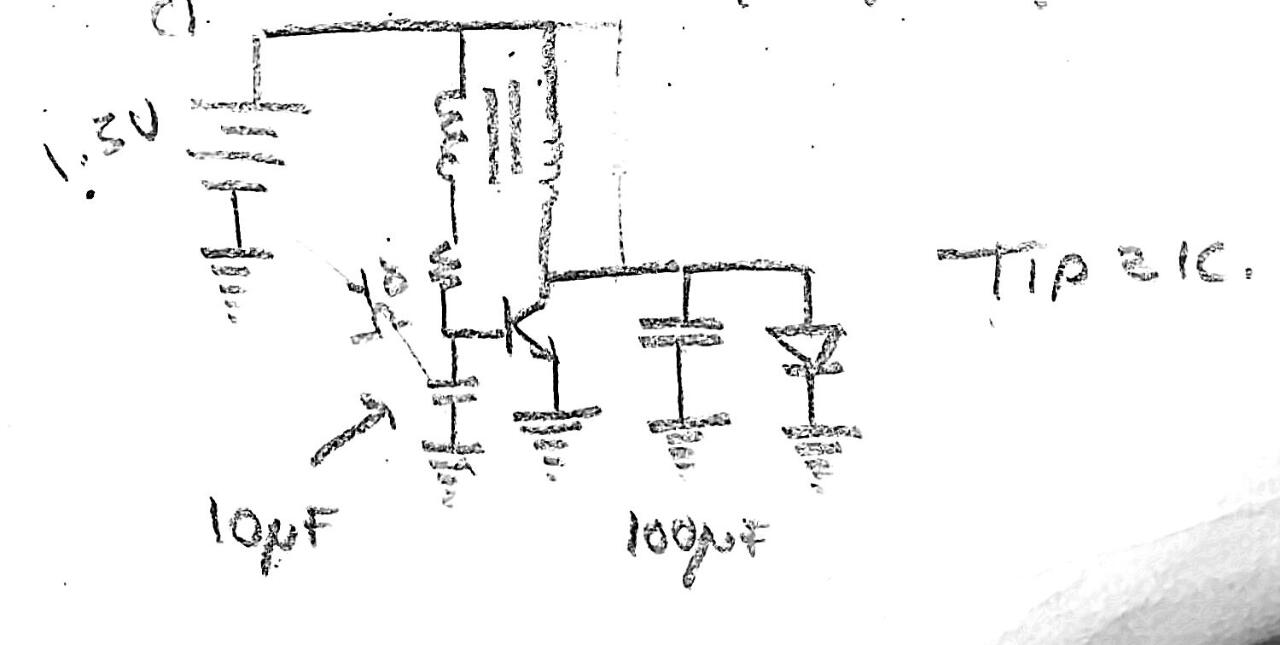 1.3V
Tip 21C.
10μF
100μF